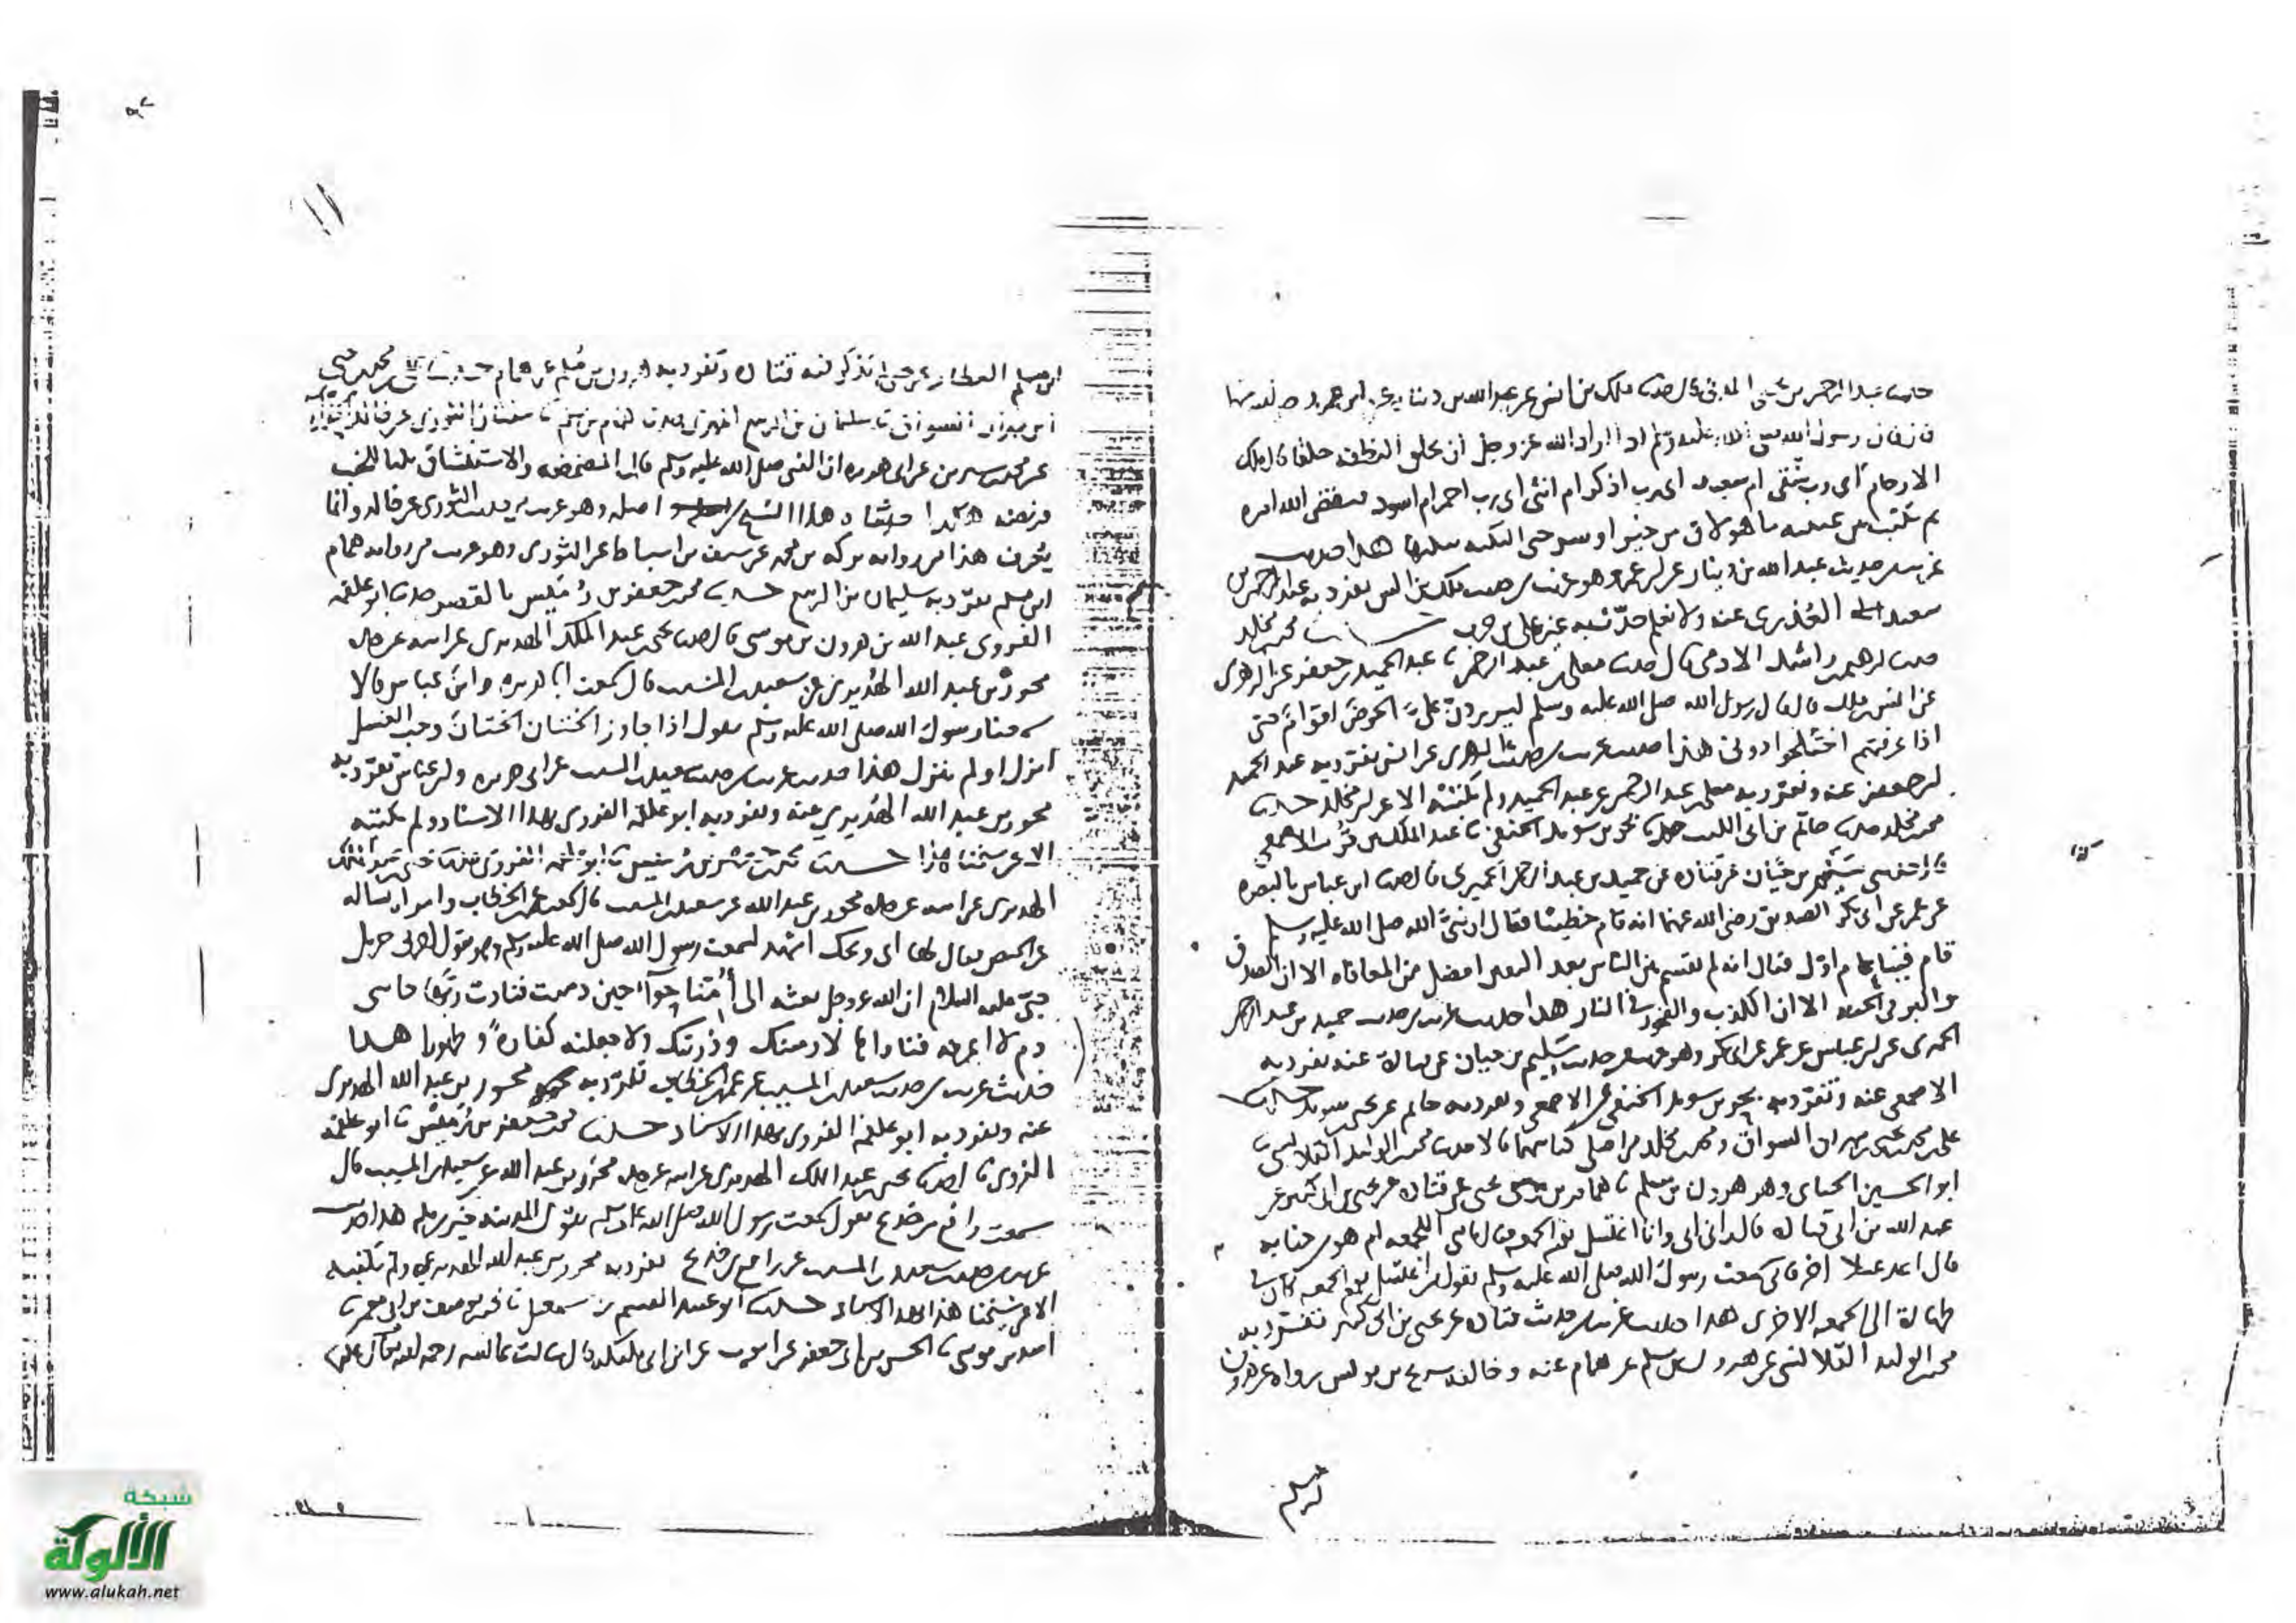 حدثنا عبد الرحمن بن يحيى قال حدثنا ملك بن انس عن عبد الله بن دينار عن ابن عمر
قال قال رسول الله صلى الله عليه وسلم اذا اراد الله عز وجل ان يخلق النطفه خلقا قال ملك
الارحام اى رب شقى ام سعيد اى رب اذكر ام انثى اى رب احمر ام اسود فيقضى الله امره
ثم يكتب بين عينيه ما هو لاق من خير او سو حتى النكبه ينكبها هذا حديث
غريب من حديث عبد الله بن دينار عن ابن عمر وهو غريب من حديث ملك بن انس تفرد به عبد الرحمن بن
سعيد العذرى عنه ولا نعلم حدث به غير على بن حرب حدثنا محمد بن مخلد
حدثنا ابرهيم بن راشد الادمى قال حدثنا معلى بن عبد الرحمن نا عبد الحميد بن جعفر عن الزهرى
عن انس بن ملك قال قال رسول الله صلى الله عليه وسلم ليردن على الحوض اقوام حتى
اذا عرفتهم اختلجوا دونى هذا حديث غريب من حديث الزهرى عن انس تفرد به عبد الحميد
بن جعفر عنه وتفرد به معلى بن عبد الرحمن عن عبد الحميد ولم نكتبه الا عن ابن مخلد حدثنا
محمد بن مخلد حدثنا حاتم بن ابى الليث حدثنا بحر بن سويد الحنفى نا عبد الملك بن قريب الاصمعى
سليم بن حيان عن قتاده عن حميد بن عبد الرحمن الحميرى قال حدثنا ابن عباس بالبصره
عن عمر عن ابى بكر الصديق رضى الله عنهما انه قام خطيبا فقال ان نبى الله صلى الله عليه وسلم
قام فينا عام اول فقال انه لم يقسم بين الناس بعد اليقين افضل من المعافاه الا ان الصدق
والبر فى الجنه الا ان الكذب والفجور فى النار هذا حديث غريب من حديث حميد بن عبد الرحمن
الحميرى عن ابن عباس عن عمر عن ابى بكر وهو غريب من حديث سليم بن حيان عن قتادة عنه تفرد به
الاصمعى عنه وتفرد به بحر بن سويد الحنفى عن الاصمعى وتفرد به حاتم عن بحر بن سويد حدثنا
على بن محمد بن يحيى بن مهران السواق ومحمد بن مخلد من اصل كتابيهما قالا حدثنا محمد بن الوليد القلانسى نا
ابو الحسين الحنائى وهو هرون بن مسلم نا همام بن يحيى عن قتاده عن يحيى بن ابى كثير عن
عبد الله بن ابى قتاده قال دخل ابى وانا اغتسل يوم الجمعه فقال يا بنى اللجمعه ام هو من جنابه
قال اعد غسلا اخر فانى سمعت رسول الله صلى الله عليه وسلم يقول من اغتسل يوم الجمعه كان فى
طهارة الى الجمعه الاخرى هذا حديث غريب من حديث قتاده عن يحيى بن ابى كثير تفرد به
محمد بن الوليد القلانسى عن هرون بن مسلم عن همام عنه وخالفه سريج بن يونس رواه عن هرون
بن مسلم
١١
ابن مسلم العطار ولم يذكر فيه قتاده وتفرد به هرون بن مسلم عن همام حدثنا على بن محمد بن يحيى
ابن مهران السواق نا سليمان بن الربيع النهدى حدثنا همام بن مسلم نا سفين الثورى عن خالد
عن محمد بن سيرين عن ابى هريره ان النبى صلى الله عليه وسلم قال المضمضه والاستنشاق ثلثا للجنب
فريضه هكذا حدثناه هذا الشيخ من اصله وهو غريب من حديث الثورى عن خالد وانما
يعرف هذا من روايه بركه بن محمد عن يوسف بن اسباط عن الثورى وهو غريب من روايه همام
ابن مسلم تفرد به سليمان بن الربيع حدثنا محمد بن جعفر بن رميس بالقصر حدثنا ابو علقمه
الفروى عبد الله بن هرون بن موسى قال حدثنا يحيى بن عبد الملك الهديرى عن ابيه عن جده
محرر بن عبد الله الهديرى عن سعيد بن المسيب قال سمعت ابا هريره وابن عباس قالا
سمعنا رسول الله صلى الله عليه وسلم يقول اذا جاوز الختان الختان وجب الغسل
انزل او لم ينزل هذا حديث غريب من حديث سعيد بن المسيب عن ابى هريره وابن عباس تفرد به
محرر بن عبد الله الهديرى عنه وتفرد به ابو علقمه الفروى بهذا الاسناد ولم نكتبه
الا عن شيخنا هذا حدثنا محمد بن جعفر بن رميس نا ابو علقمه الفروى حدثنا يحيى بن عبد الملك
الهديرى عن ابيه عن جده محرر بن عبد الله عن سعيد بن المسيب قال سمعت عمر بن الخطاب وامراه تساله
عن الحيض فقال لها اى ويحك اشهد لسمعت رسول الله صلى الله عليه وسلم وهو يقول اخبرنى جبريل
عليه السلام ان الله عز وجل بعثه الى امنا حوآ حين دميت فنادت ربها جاء منى
دم لا اعرفه فناداها لادمينك وذريتك ولاجعلنه كفارة وطهورا هذا
حديث غريب من حديث سعيد بن المسيب عن عمر بن الخطاب تفرد به محرر بن عبد الله الهديرى
عنه وتفرد به ابو علقمه الفروى بهذا الاسناد حدثنا محمد بن جعفر بن رميس نا ابو علقمه
الفروى نا يحيى بن عبد الملك الهديرى عن ابيه عن جده محرر بن عبد الله عن سعيد بن المسيب قال
سمعت رافع بن خديج يقول سمعت رسول الله صلى الله عليه وسلم يقول المدينه خير من مكه هذا حديث
غريب من حديث سعيد بن المسيب عن رافع بن خديج تفرد به محرر بن عبد الله الهديرى ولم نكتبه
الا عن شيخنا هذا بهذا الاسناد حدثنا ابو عبيد القسم بن اسمعيل نا محمد بن يوسف بن ابى معمر نا
اسد بن موسى نا الحسن بن ابى جعفر عن ايوب عن ابن ابى مليكه قال قالت عائشه رحمه الله عليها
شبكة
الألوكة
www.alukah.net